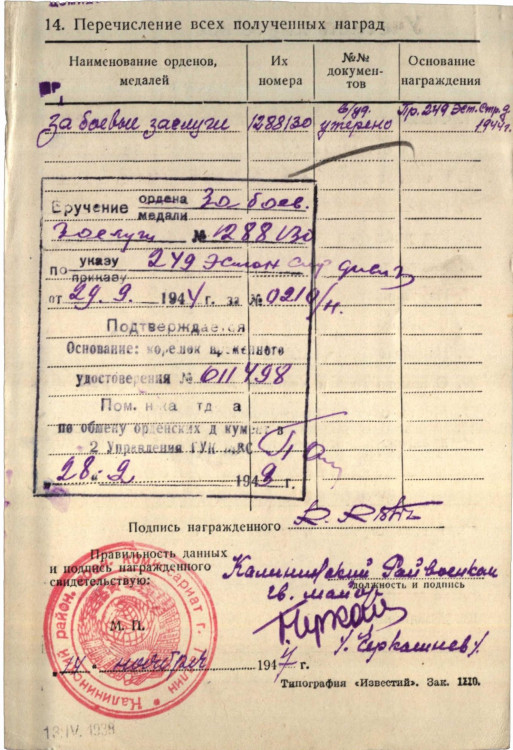 14. Перечисление всех полученных наград
Наименование орденов, медалей
Их номера
№№ документов
Основание награждения
За боевые заслуги
1288130
в/уд. утерено
Пр. 249 Эст. Стр. д. 1944 г.
Вручение ордена медали За боев.
Заслуги № 1288130
по указу приказу 249 Эстон стр дивиз
от 29.9. 1944 г. за № 0210/н.
Подтверждается
Основание: корешок временного
удостоверения № 011498
Пом. н-ка отд а
по обмену орденских д кумен в
2 Управления ГУК ВС
28. 2 1949 г.
Подпись награжденного
Правильность данных
и подпись награжденного
свидетельствую:
Калининский Райвоенком
должность и подпись
гв. майор
/Черкашнев/
М. П.
ноября 1947 г.
Типография «Известий». Зак. 1110.
13.IV.1938